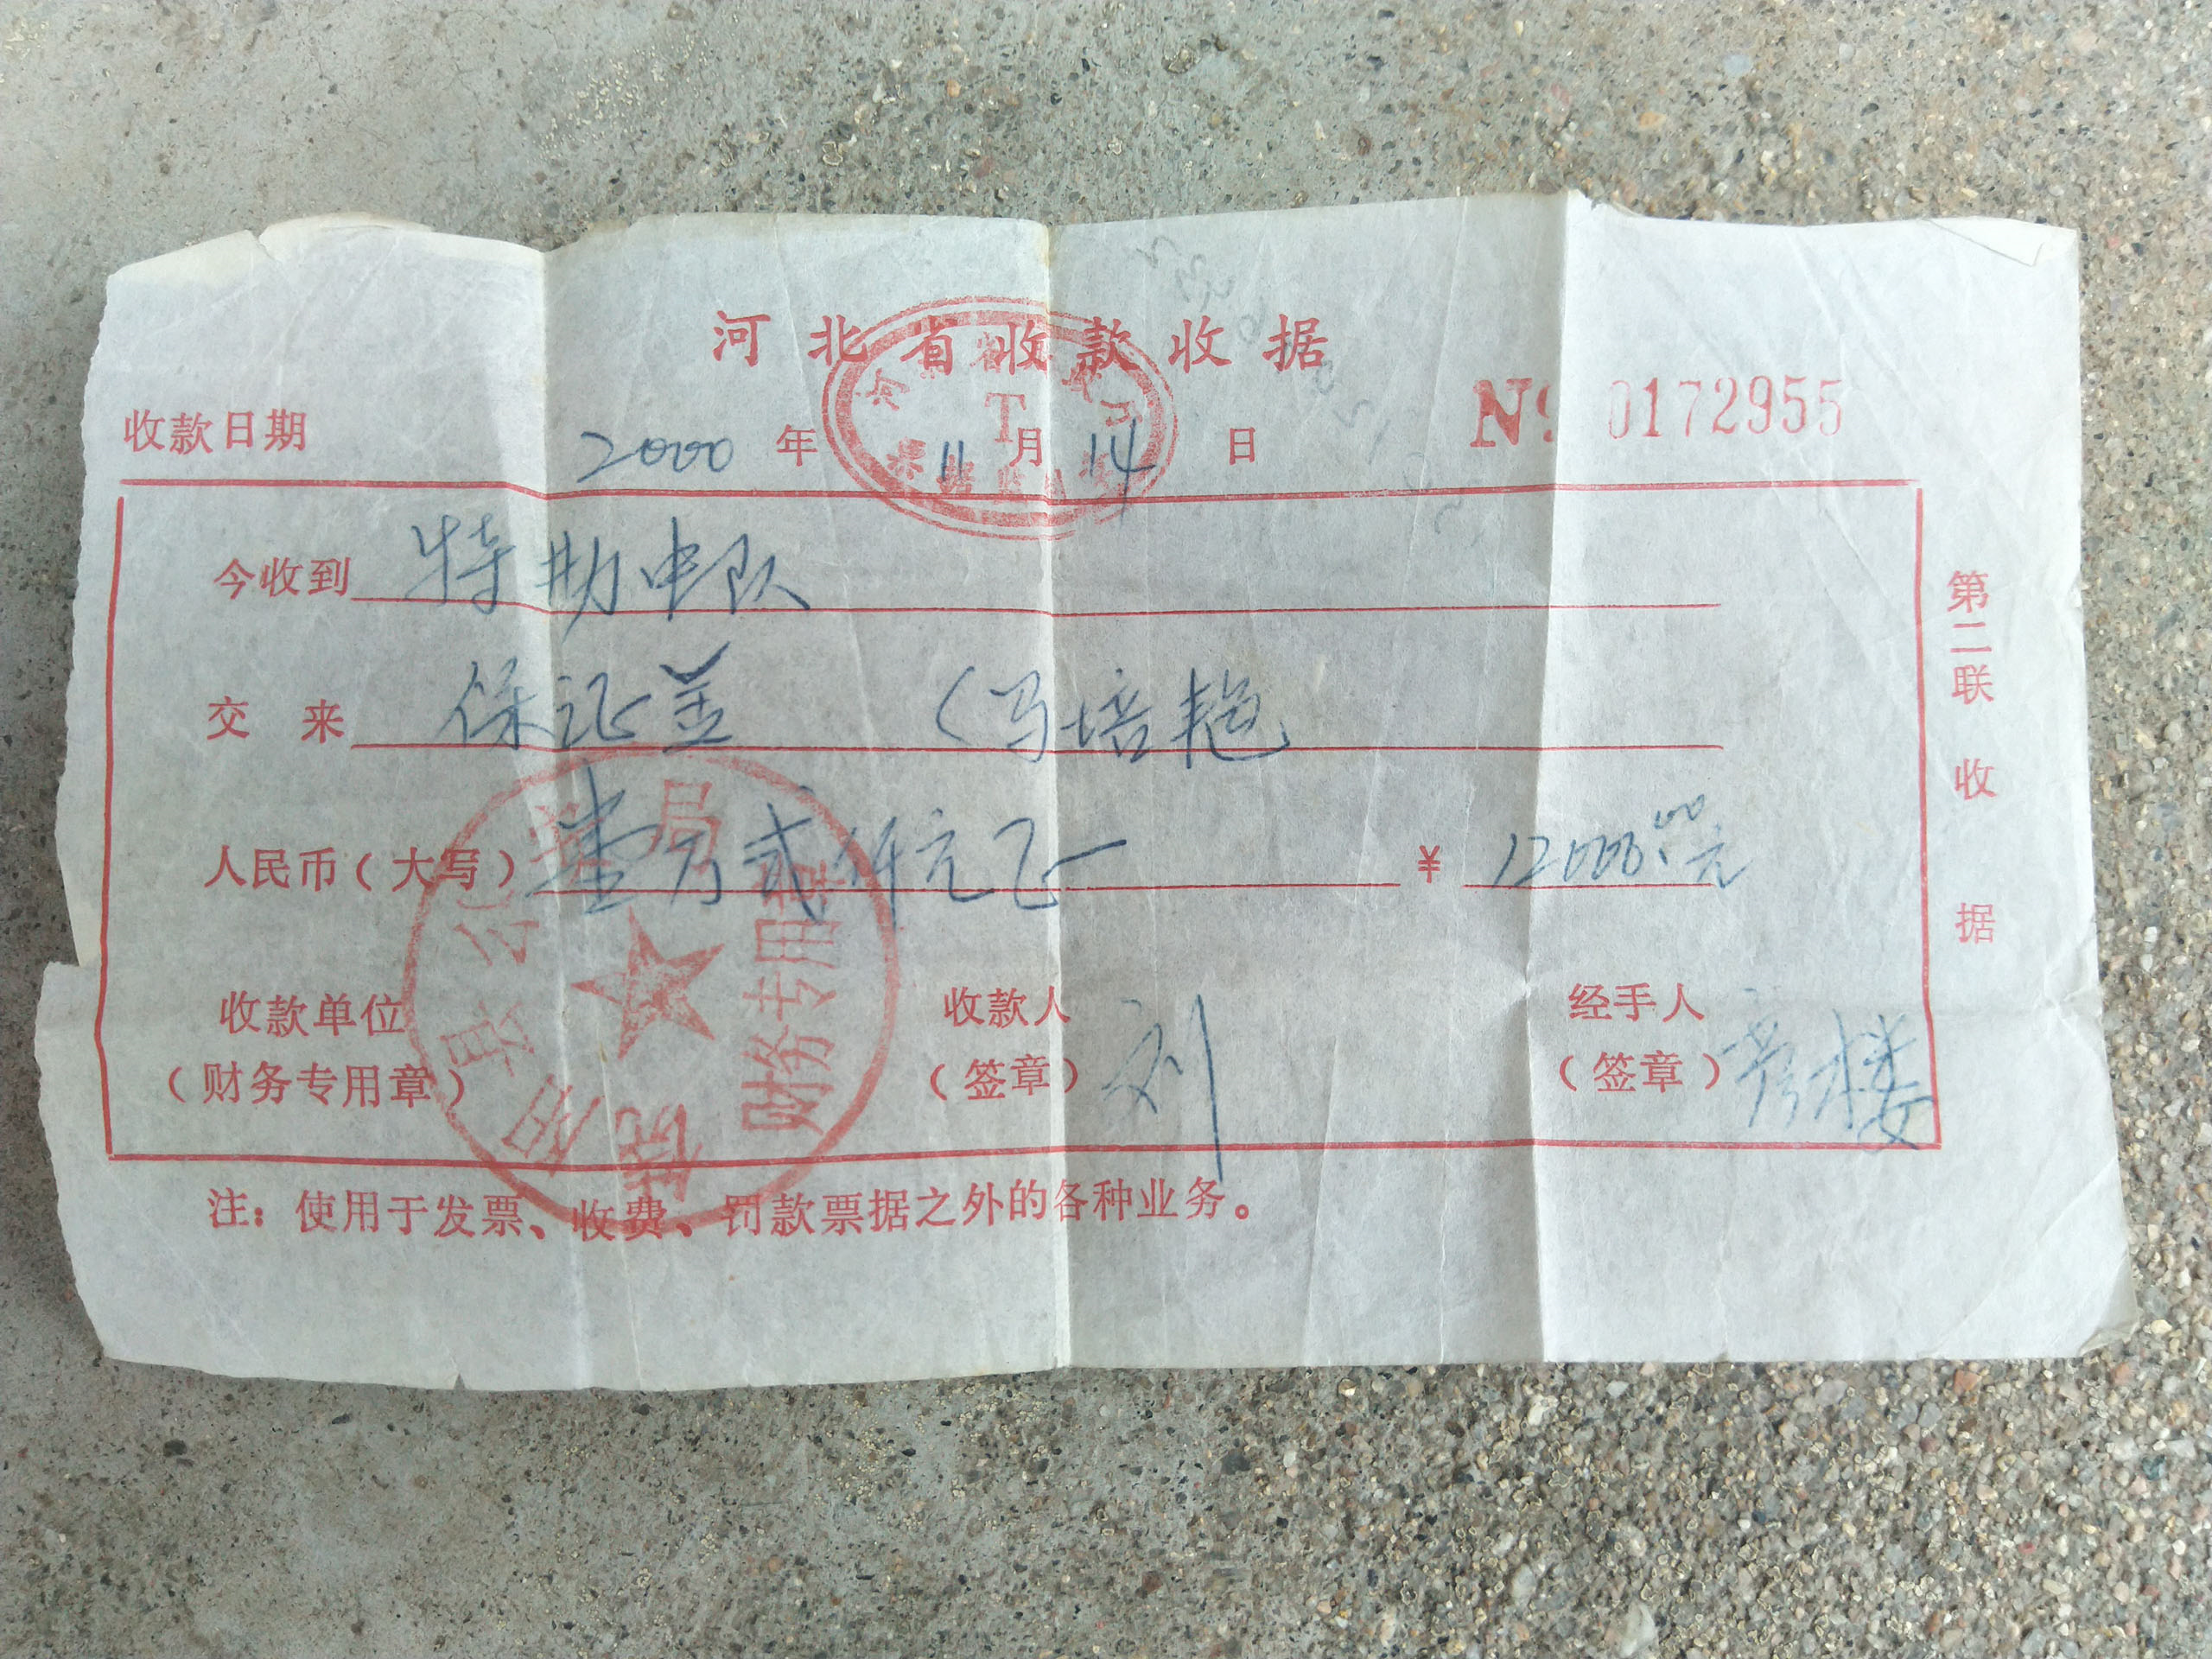 河北省收款收据
收款日期 2000 年 11 月 14 日 № 0172955
今收到 特勤中队
交来 保证金 (马培艳
人民币(大写) 壹万贰仟元正 ¥ 12000.00元
收款单位 收款人 经手人
(财务专用章) (签章) 刘 (签章)
县公安局
财务专用章
注：使用于发票、收费、罚款票据之外的各种业务。
第二联 收据